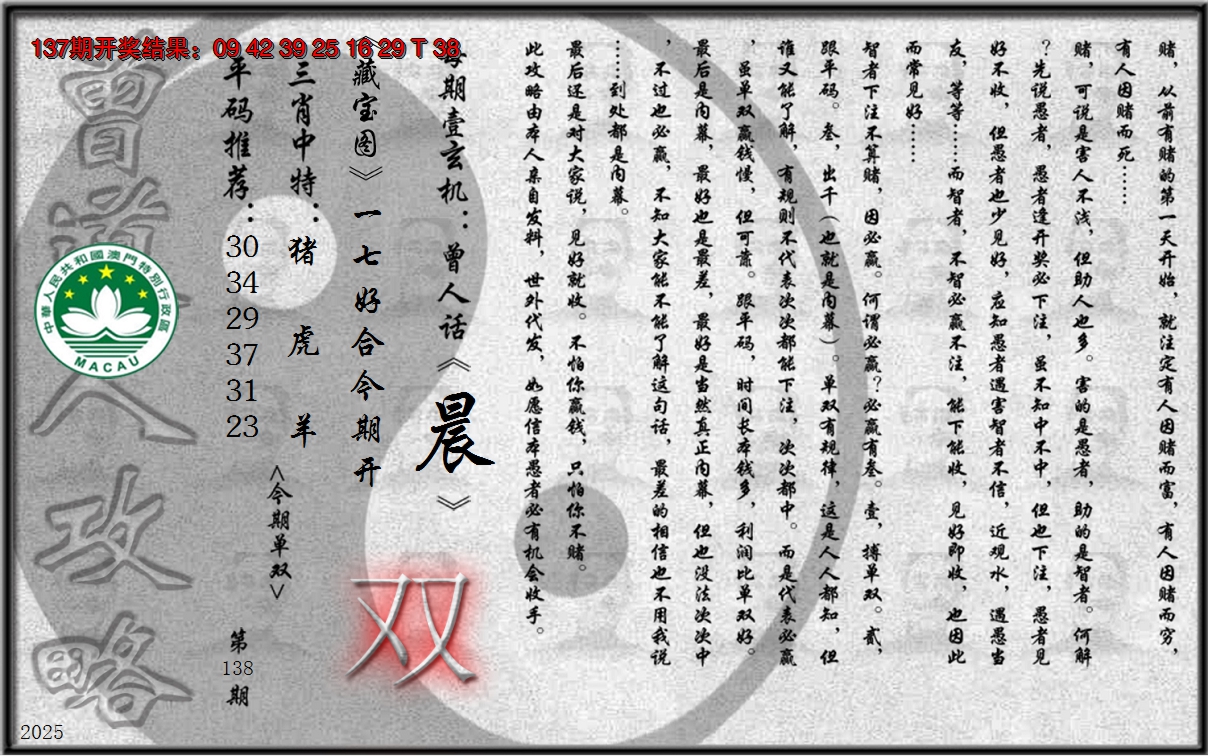 137期开奖结果：09 42 39 25 16 29 T 38
赌，从前有赌的第一天开始，就注定有人因赌而富，有人因赌而穷，
有人因赌而死……
赌，可说是害人不浅，但助人也多。害的是愚者，助的是智者。何解
？先说愚者，愚者逢开奖必下注，虽不知中不中，但也下注，愚者见
好不收，但愚者也少见好，应知愚者遇害智者不信，近观水，遇愚当
友，等等……而智者，不智必赢不注，能下能收，见好即收，也因此
而常见好……
智者下注不算赌，因必赢。何谓必赢？必赢有叁。壹，搏单双。贰，
跟平码。叁，出千（也就是内幕）。单双有规律，这是人人都知，但
谁又能了解，有规则不代表次次都能下注，次次都中。而是代表必赢
，虽单双赢钱慢，但可靠。跟平码，时间长本钱多，利润比单双好。
最后是内幕，最好也是最差，最好是当然真正内幕，但也没法次次中
，不过也必赢，不知大家能不能了解这句话，最差的相信也不用我说
……到处都是内幕。
最后还是对大家说，见好就收。不怕你赢钱，只怕你不赌。
此攻略由本人亲自发料，世外代发，如愿信本愚者必有机会收手。
每期壹玄机：曾人话《晨》
《藏宝图》一七好合今期开
双
三肖中特：猪 虎 羊
<今期单双>
平码推荐：30 34 29 37 31 23
第138期
曾道人攻略
中華人民共和國澳門特別行政區
MACAU
2025